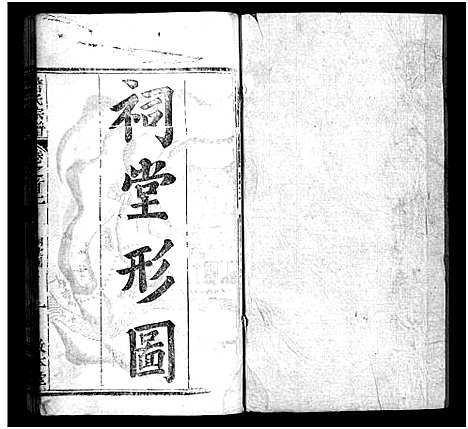 祠堂形圖